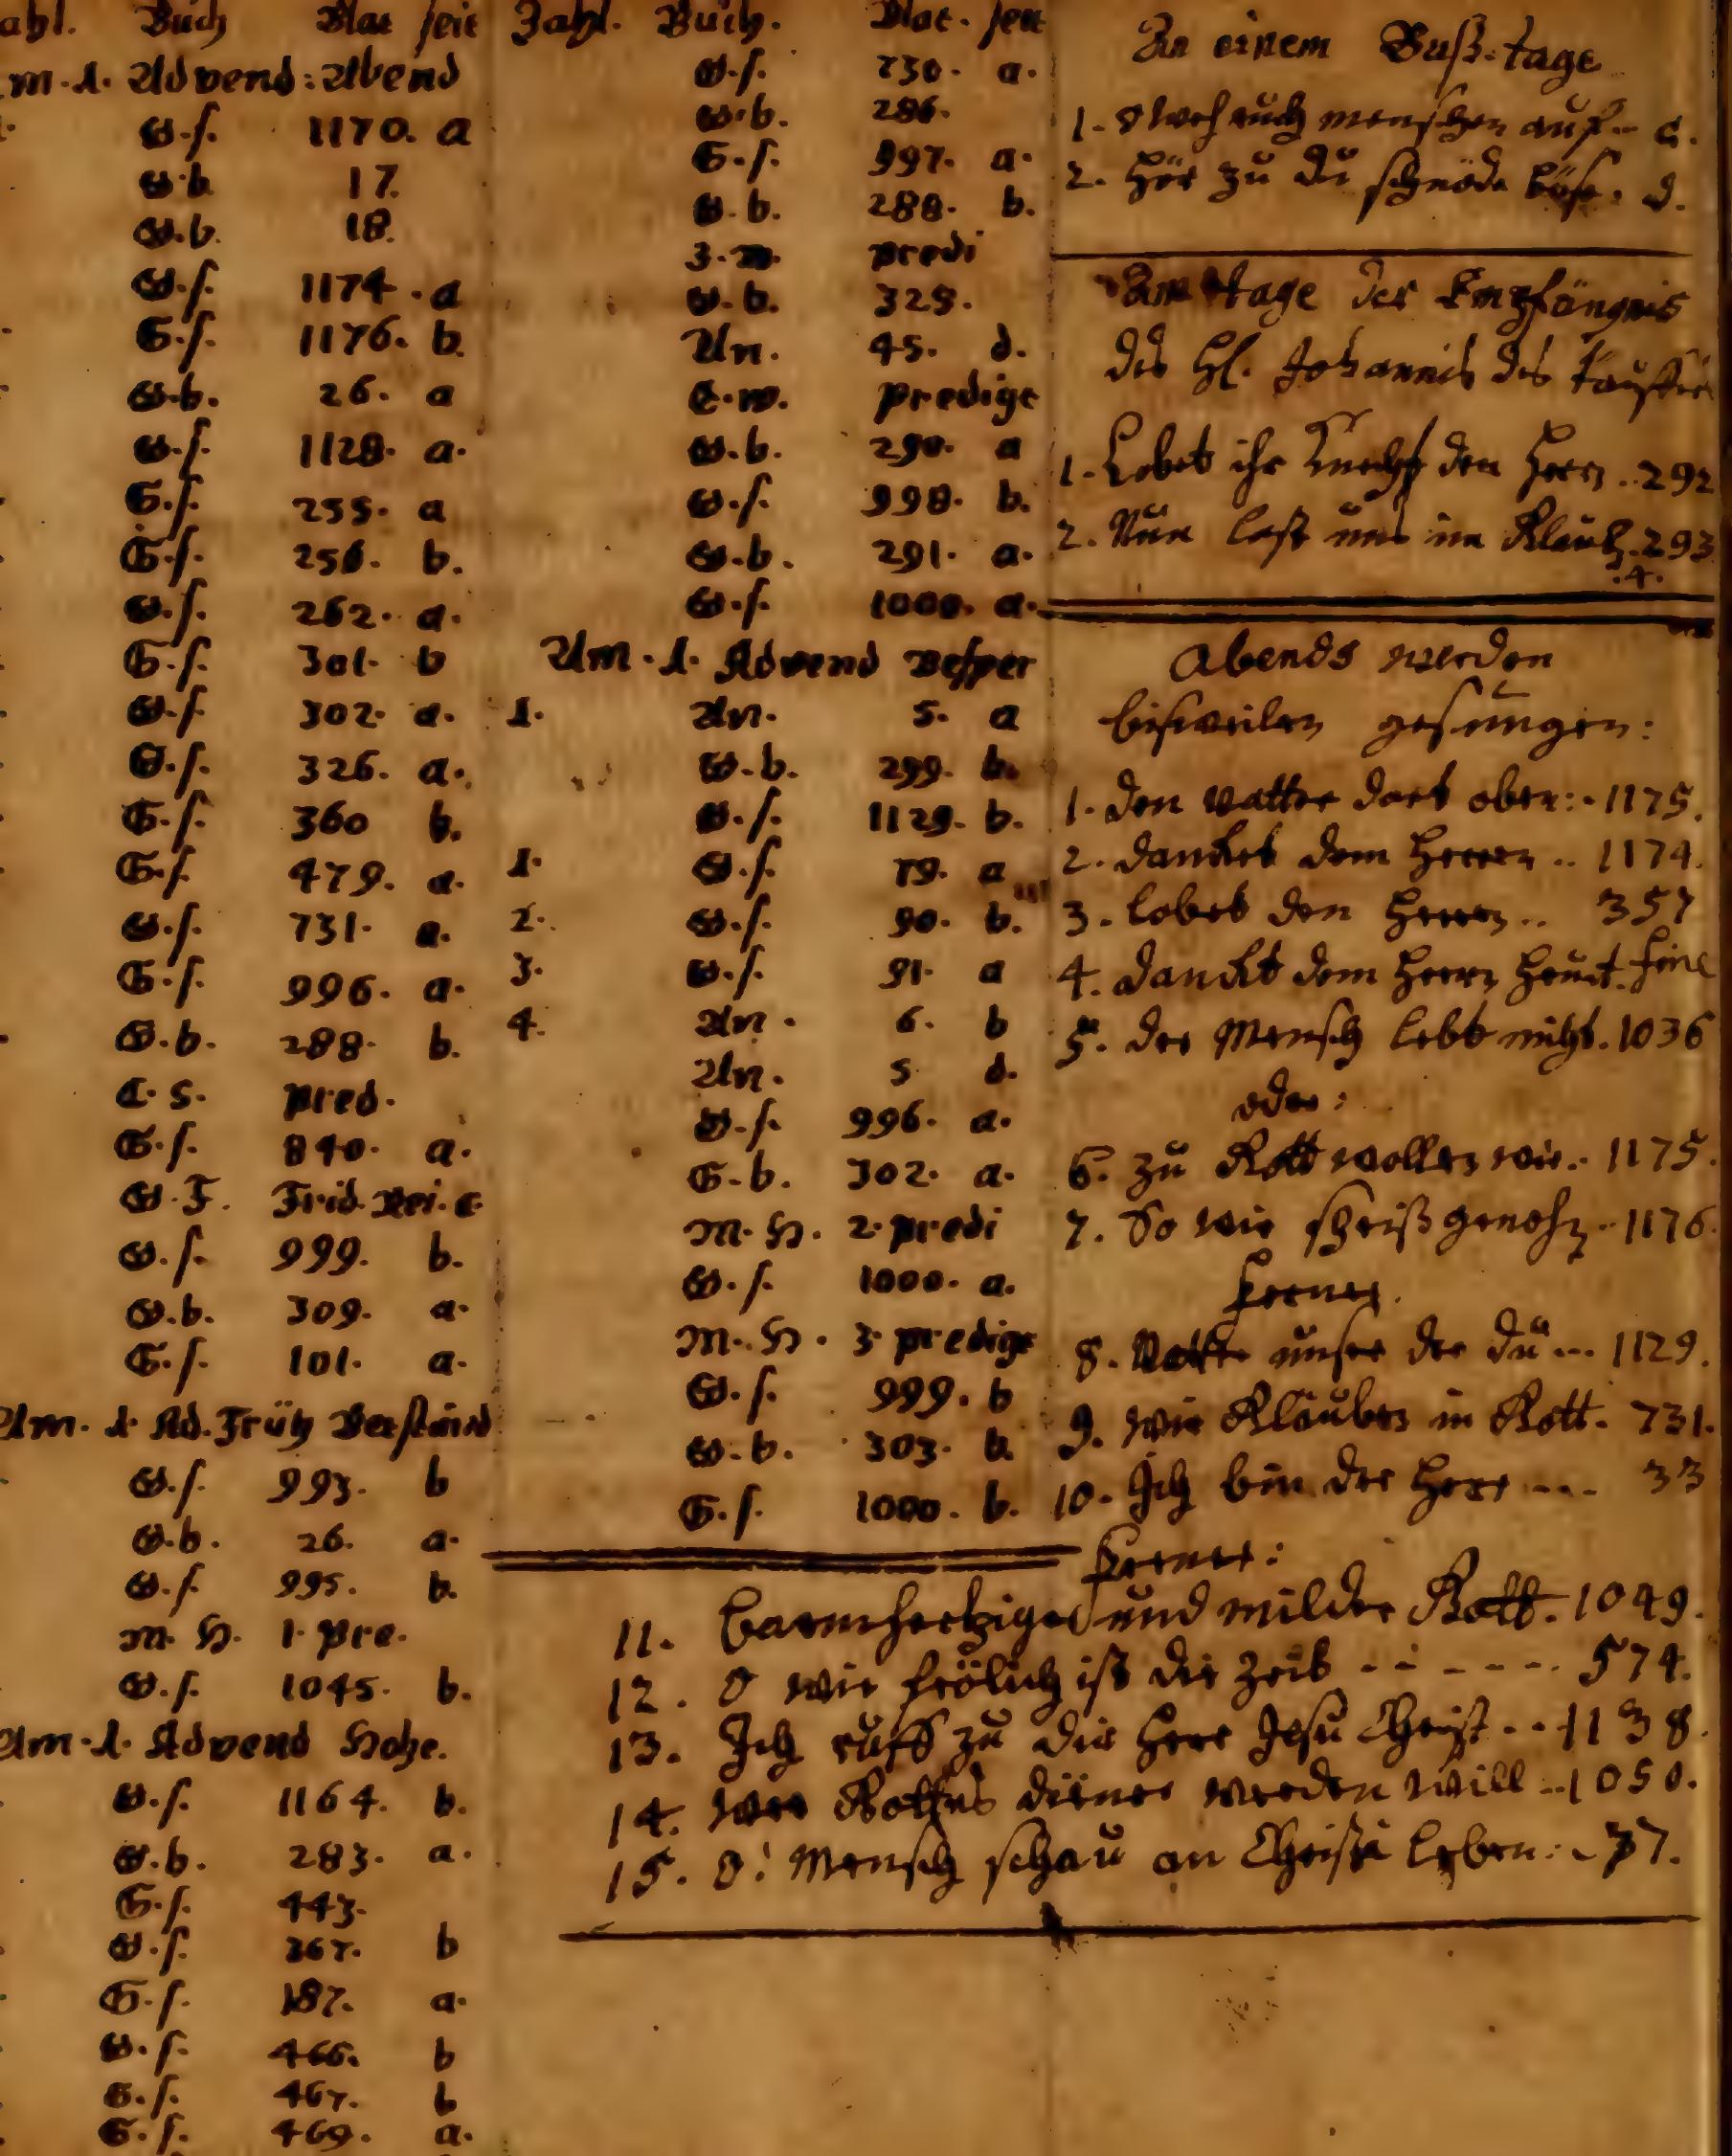 Buch Blat seit
m. 1. Advend: Abend
G.s. 1170. a
G.b. 17.
G.b. 18.
G.s. 1174. a
G.s. 1176. b.
G.b. 26. a
G.s. 1128. a.
G.s. 255. a
G.s. 256. b.
G.s. 262. a.
G.s. 301. b
G.s. 302. a.
G.s. 326. a.
G.s. 360 b.
G.s. 479. a.
G.s. 731. a.
G.s. 996. a.
G.b. 288. b.
C. s. pred.
G.s. 840. a.
G. F. Frid.
G.s. 999. b.
G.b. 309. a.
G.s. 101. a.
Am. 1. Ad. Früh
G.s. 993. b
G.b. 26. a.
G.s. 995. b.
M. H. 1. pre.
G.s. 1045. b.
Am. 1. Advend Hohe.
G.s. 1164. b.
G.b. 283. a.
G.s. 443.
G.s. 267. b
G.s. 187. a.
G.s. 466. b
G.s. 467. b
G.s. 469. a.
Zahl. Buch. Blat. seit
G.s. 730. a.
G.b. 286.
G.s. 997. a.
G.b. 288. b.
predi
G.b. 329.
An. 45. d.
E.w. predigt
G.b. 290. a
G.s. 998. b.
G.b. 291. a.
G.s. 1000. a.
Am. 1. Advend Vesper
1. An. 5. a
G.b. 299. b.
G.s. 1129. b.
1. G.s. 79. a
2. G.s. 90. b.
3. G.s. 91. a
4. An. 6. b
An. 5 d.
G.s. 996. a.
G.b. 302. a.
M. H. 2. predi
G.s. 1000. a.
M. H. 3. predigt
G.s. 999. b
G.b. 303. b.
G.s. 1000. b.
An einem Buß-tage
1. O weh euch menschen auf.. c.
2. Hör zu du schnöde böse: d.
Am tage der Empfängnis
des Hl. Johannis des Tauffers
1. Lobet ihr Knecht den Herr.. 292
2. Nun last uns im Glaub. 293
.4.
Abends werden
bisweilen gesungen:
1. Den Vatter dort oben:. 1175.
2. Dancket dem Herren.. 1174.
3. Lobet den Herren.. 357
4. Danckt dem Herrn heut. fine
5. Der Mensch lebt nicht. 1036
oder:
6. Zu Gott wollen wir.. 1175.
7. So wir speiß genossn.. 1176.
Ferner.
8. Vatter unser der du... 1129.
9. Wir Glauben in Gott. 731.
10. Ich bin der Herr.... 33
Ferner:
11. Barmhertziger und milder Gott. 1049.
12. O wie frölich ist die Zeit - - - - - . 574.
13. Ich ruff zu dir Herr Jesu Christ.. 1138.
14. Wer Gottes diener werden will .. 1050.
15. O! Mensch schau an Christi leben:. 37.